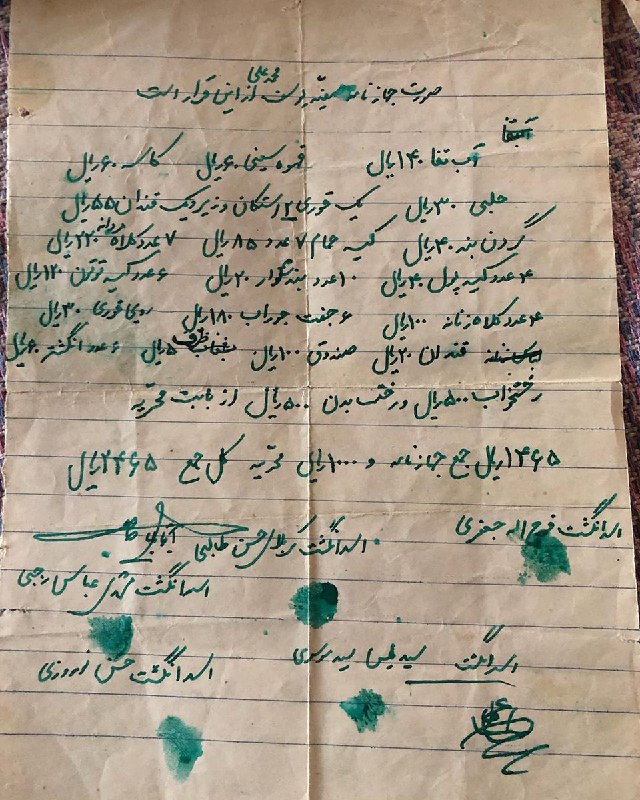 محمد علی
صورت جهاز نامه سینه بوس از این قرار است
آب تفا ۱۴۰ ریال قهوه سینی ۶۰ ریال کاسه ۶۰ ریال
حلبی ۳۰ ریال یک قوری ۲ استکان و زیر و یک قندان ۵۵ ریال
گردن بند ۴۰ ریال کیسه حمام ۷ عدد ۸۵ ریال ۷ عدد کلاه مردانه ۲۲۰ ریال
۴ عدد کیسه پول ۴۰ ریال ۱۰ عدد بند شلوار ۲۰ ریال ۶ عدد کیسه توتون ۱۲۰ ریال
۴ عدد کلاه زنانه ۱۰۰ ریال ۶ جفت جوراب ۱۸۰ ریال روی قوری ۳۰ ریال
قندان ۲۰ ریال صندوق ۱۰۰ ریال ظرف ۵ ریال ۶ عدد انگشتر ۶۰ ریال
رختخواب ۵۰۰ ریال و رخت بدن ۵۰۰ ریال از بابت مهریه
۱۴۶۵ ریال جمع جهاز نامه و ۱۰۰۰ ریال مهریه کل جمع ۲۴۶۵ ریال
اثر انگشت فرج اله جعفری
اثر انگشت کربلائی حسن طالبی
اثر انگشت عباس رجبی
اثر انگشت سید
اثر انگشت حسن نوروزی